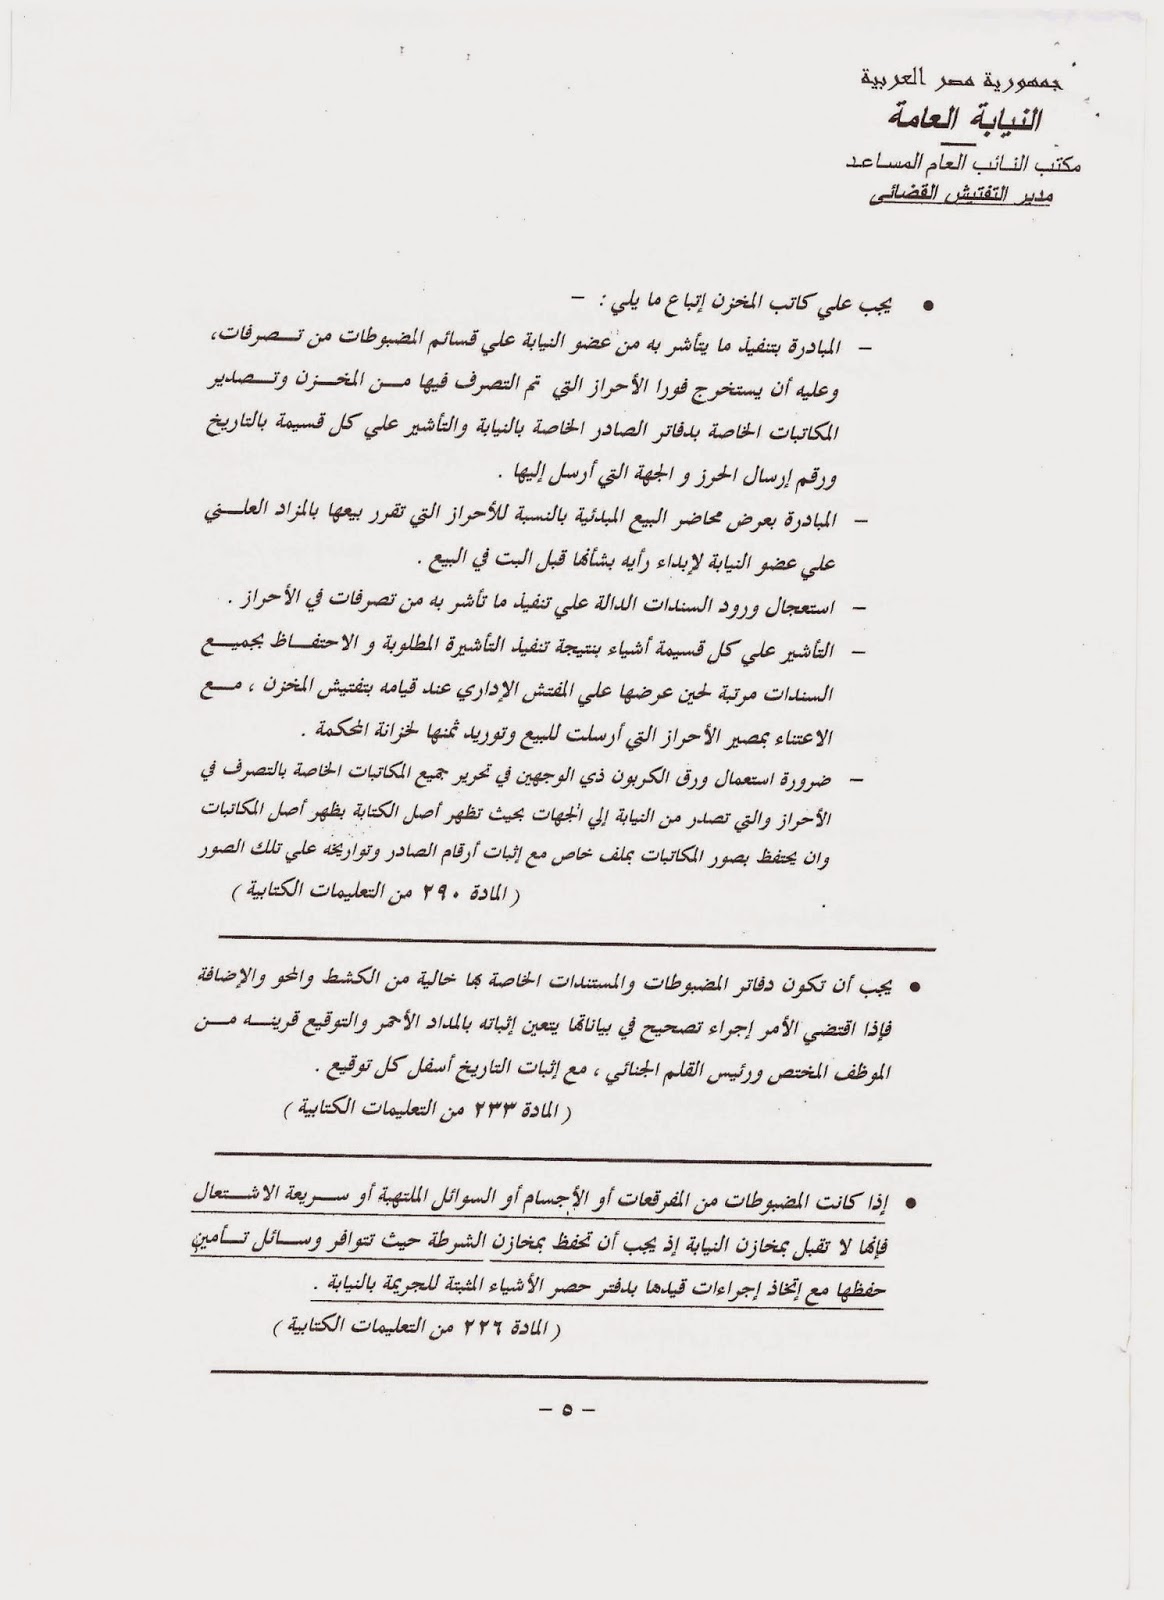 جمهورية مصر العربية
النيابة العامة
مكتب النائب العام المساعد
مدير التفتيش القضائى
• يجب علي كاتب المخزن إتباع ما يلي : –
– المبادرة بتنفيذ ما يتأشر به من عضو النيابة علي قسائم المضبوطات من تصرفات،
وعليه أن يستخرج فورا الأحراز التي تم التصرف فيها من المخزن وتصدير
المكاتبات الخاصة بدفاتر الصادر الخاصة بالنيابة والتأشير علي كل قسيمة بالتاريخ
ورقم إرسال الحرز و الجهة التي أرسل إليها .
– المبادرة بعرض محاضر البيع المبدئية بالنسبة للأحراز التي تقرر بيعها بالمزاد العلني
علي عضو النيابة لإبداء رأيه بشأنها قبل البت في البيع .
– استعجال ورود السندات الدالة علي تنفيذ ما تأشر به من تصرفات في الأحراز .
– التأشير علي كل قسيمة أشياء بنتيجة تنفيذ التأشيرة المطلوبة و الاحتفاظ بجميع
السندات مرتبة لحين عرضها علي المفتش الإداري عند قيامه بتفتيش المخزن ، مع
الاعتناء بمصير الأحراز التي أرسلت للبيع وتوريد ثمنها لخزانة المحكمة .
– ضرورة استعمال ورق الكربون ذي الوجهين في تحرير جميع المكاتبات الخاصة بالتصرف في
الأحراز والتي تصدر من النيابة إلي الجهات بحيث تظهر أصل الكتابة بظهر أصل المكاتبات
وان يحتفظ بصور المكاتبات بملف خاص مع إثبات أرقام الصادر وتواريخه علي تلك الصور
( المادة ٢٩٠ من التعليمات الكتابية )
• يجب أن تكون دفاتر المضبوطات والمستندات الخاصة بها خالية من الكشط والمحو والإضافة
فإذا اقتضي الأمر إجراء تصحيح في بياناتها يتعين إثباته بالمداد الأحمر والتوقيع قرينه من
الموظف المختص ورئيس القلم الجنائي ، مع إثبات التاريخ أسفل كل توقيع .
( المادة ٢٣٣ من التعليمات الكتابية )
• إذا كانت المضبوطات من المفرقعات أو الأجسام أو السوائل الملتهبة أو سريعة الاشتعال
فإنها لا تقبل بمخازن النيابة إذ يجب أن تحفظ بمخازن الشرطة حيث تتوافر وسائل تأمين
حفظها مع إتخاذ إجراءات قيدها بدفتر حصر الأشياء المثبتة للجريمة بالنيابة .
( المادة ٢٢٦ من التعليمات الكتابية )
– ٥ –